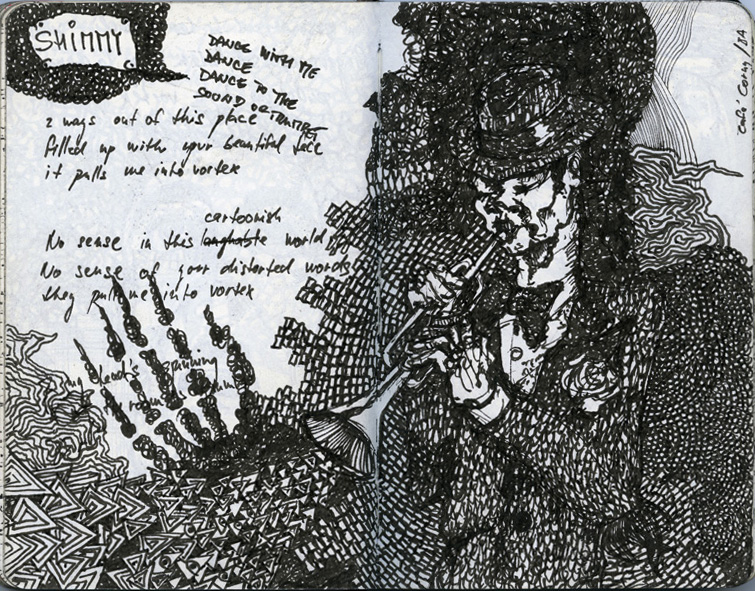 SHIMMY
DANCE WITH ME
DANCE
DANCE TO THE
SOUND OF TRUMPET
2 ways out of this place
filled up with your beautiful face
it pulls me into vortex
cartoonish
No sense in this laughable world
No sense of your distorted words
they pull me into vortex
my head's spinning
round